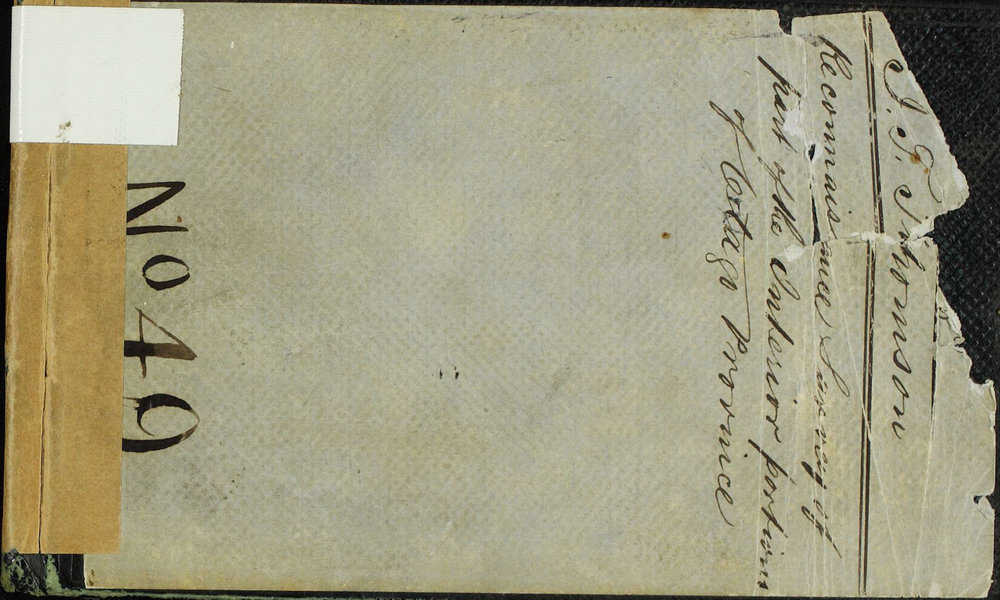 J. T. Thomson
Reconnaissance Survey of
part of the Interior portions
of Otago Province
No 49